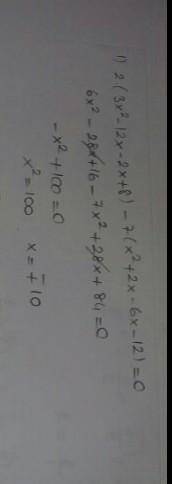 1) 2(3x²-12x-2x+8) - 7(x²+2x-6x-12)=0
6x²-28x+16-7x²+28x+84=0
-x²+100=0
x²=100 x=±10